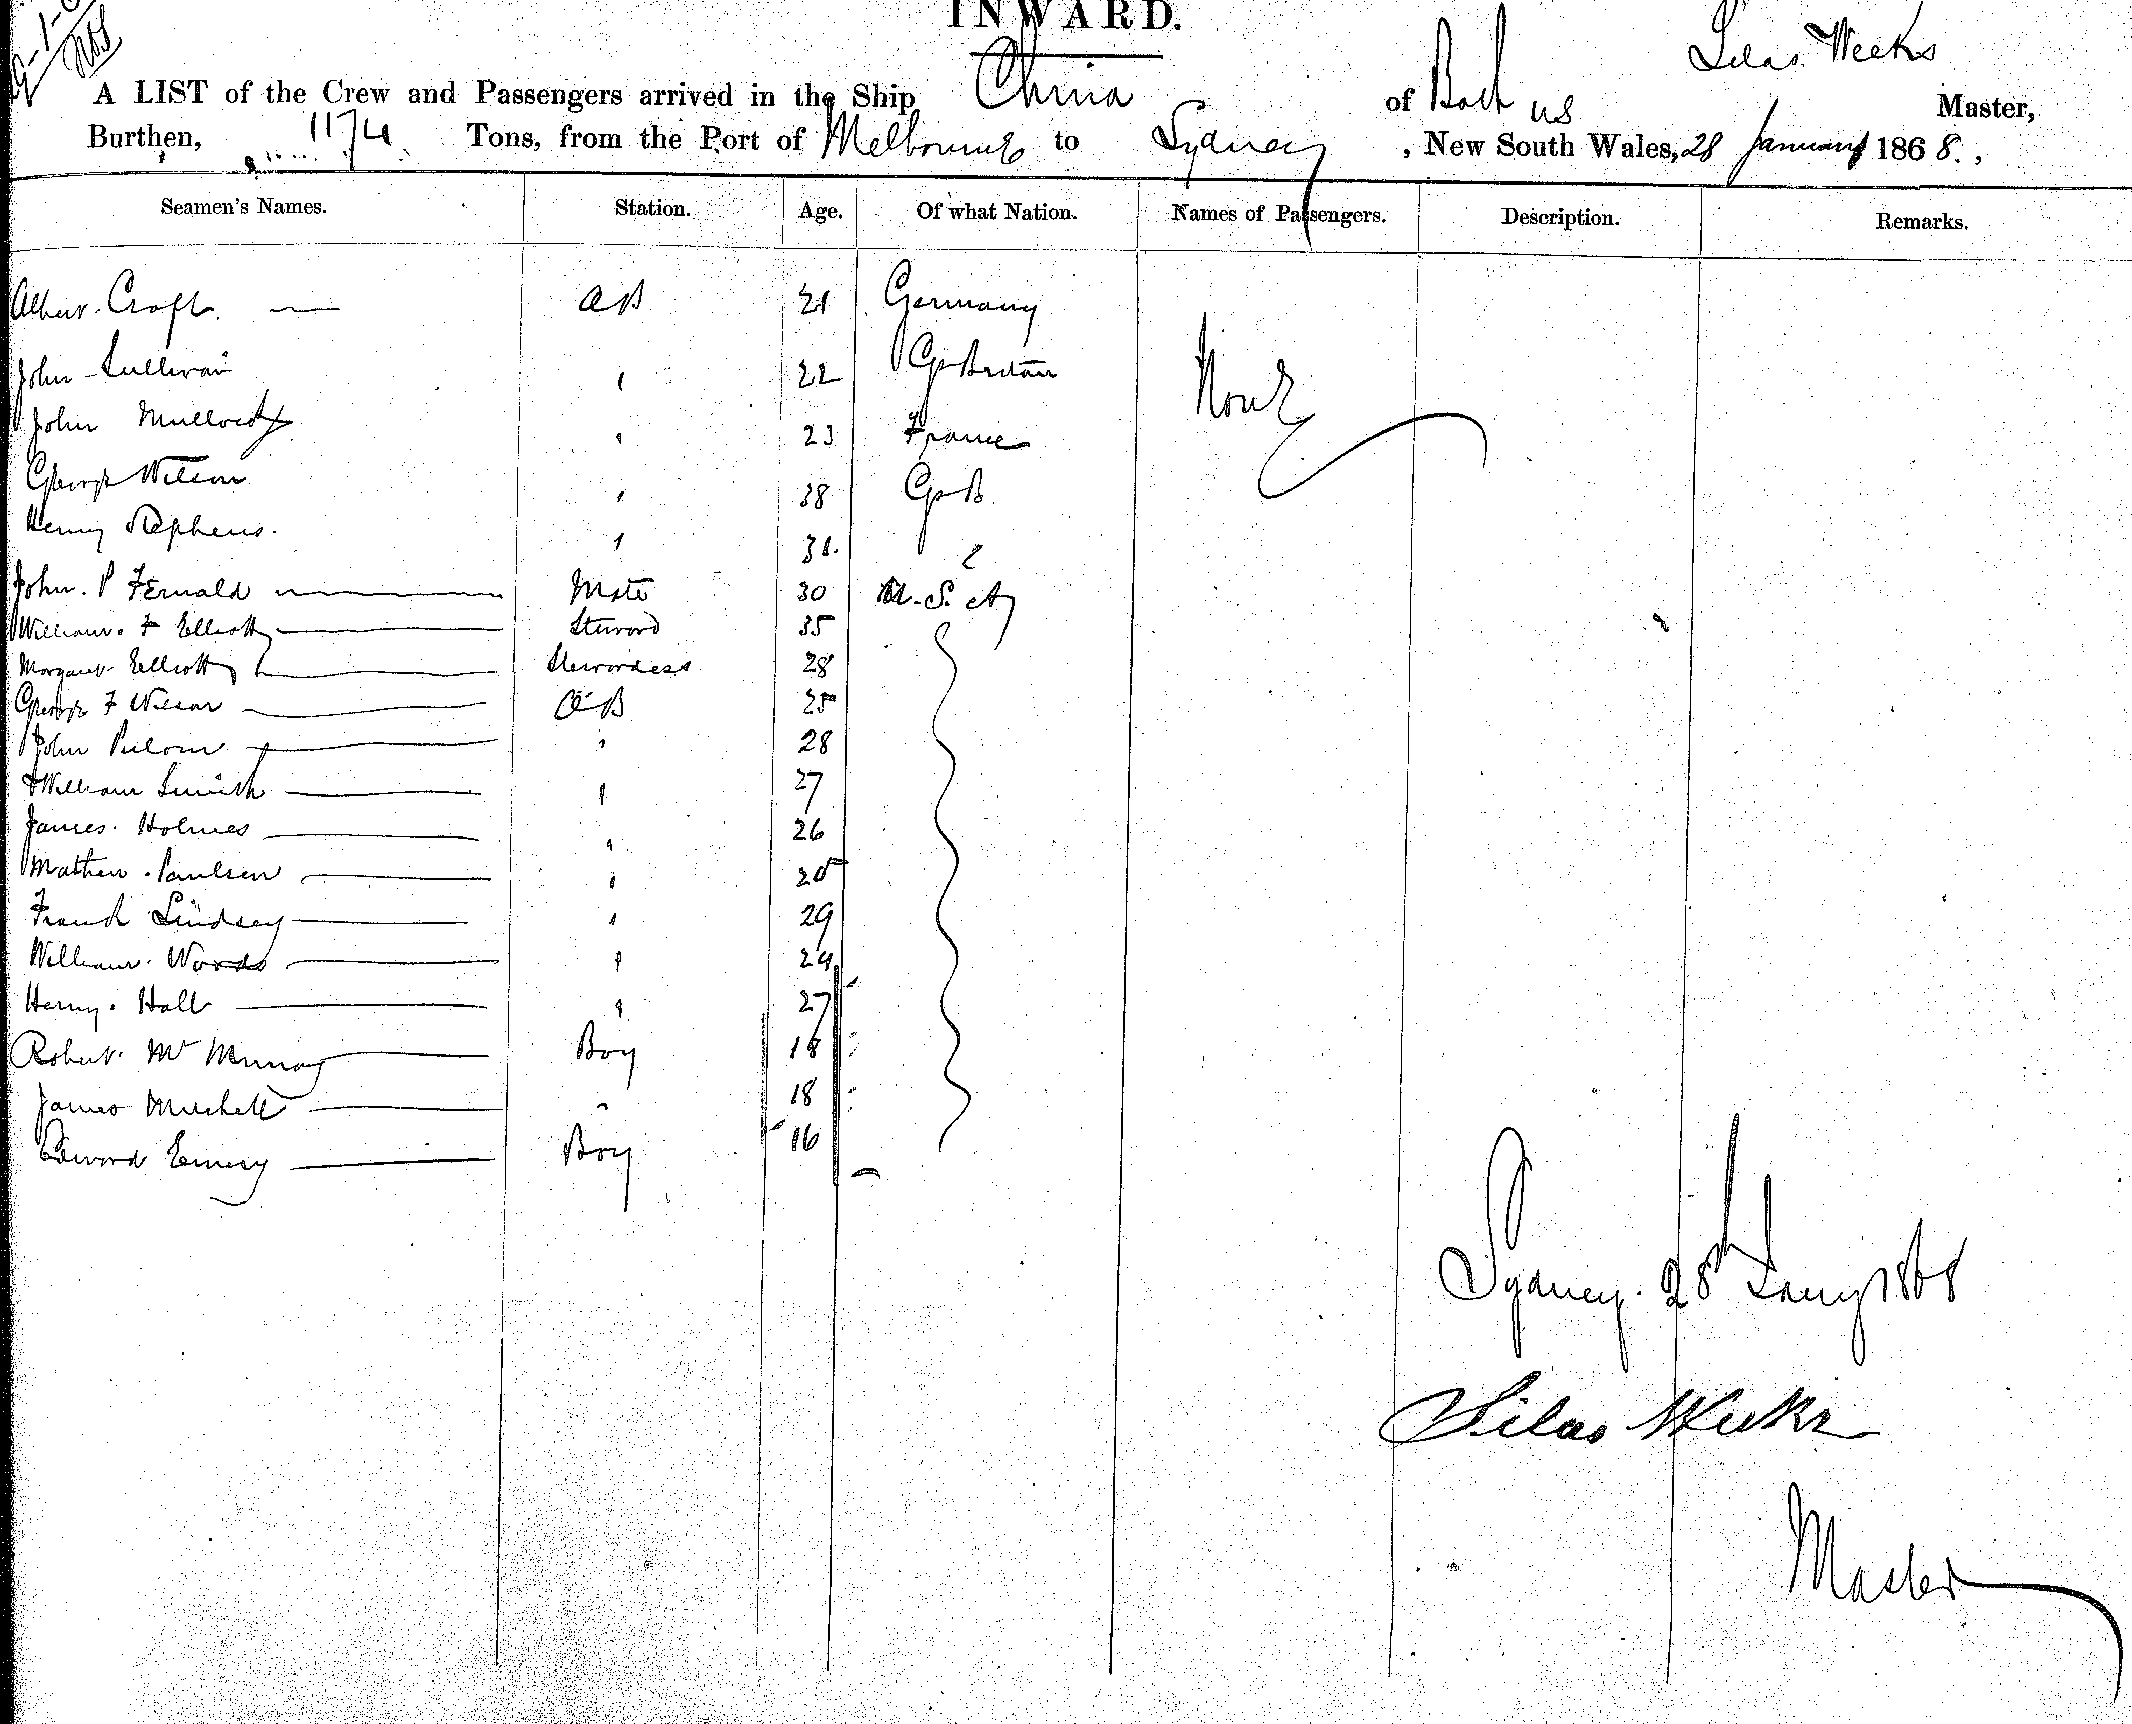 INWARD.
A LIST of the Crew and Passengers arrived in the Ship China of Bath US Silas Weeks Master,
Burthen, 1174 Tons, from the Port of Melbourne to Sydney, New South Wales, 28 January 1868.
Seamen's Names. Station. Age. Of what Nation. Names of Passengers. Description. Remarks.
Albert Croft AB 21 Germany
John Sullivan " 22 Gr Britain None
John " 23 France
George Wilson " 38 Gr B
Henry Stephens. " 31.
John. P Fernald Mate 30 U. S. A
William. F Elliott Steward 35
Margaret Elliott Stewardess 28
George F Wilson AB 25
John " 28
William Smith " 27
James. Holmes " 26
Mathew. Paulsen " 25
Frank Lindsey " 29
William. Woods " 24
Henry. Hall " 27
Robert. Mc Murray Boy 18
James Mitchell " 18
Edward Emery Boy 16
Sydney. 28th Jany 1868
Silas Weeks
Master